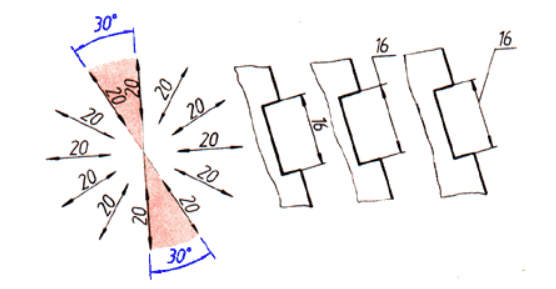 30°
20
20
20
20
20
20
20
20
20
20
20
20
30°
16
16
16